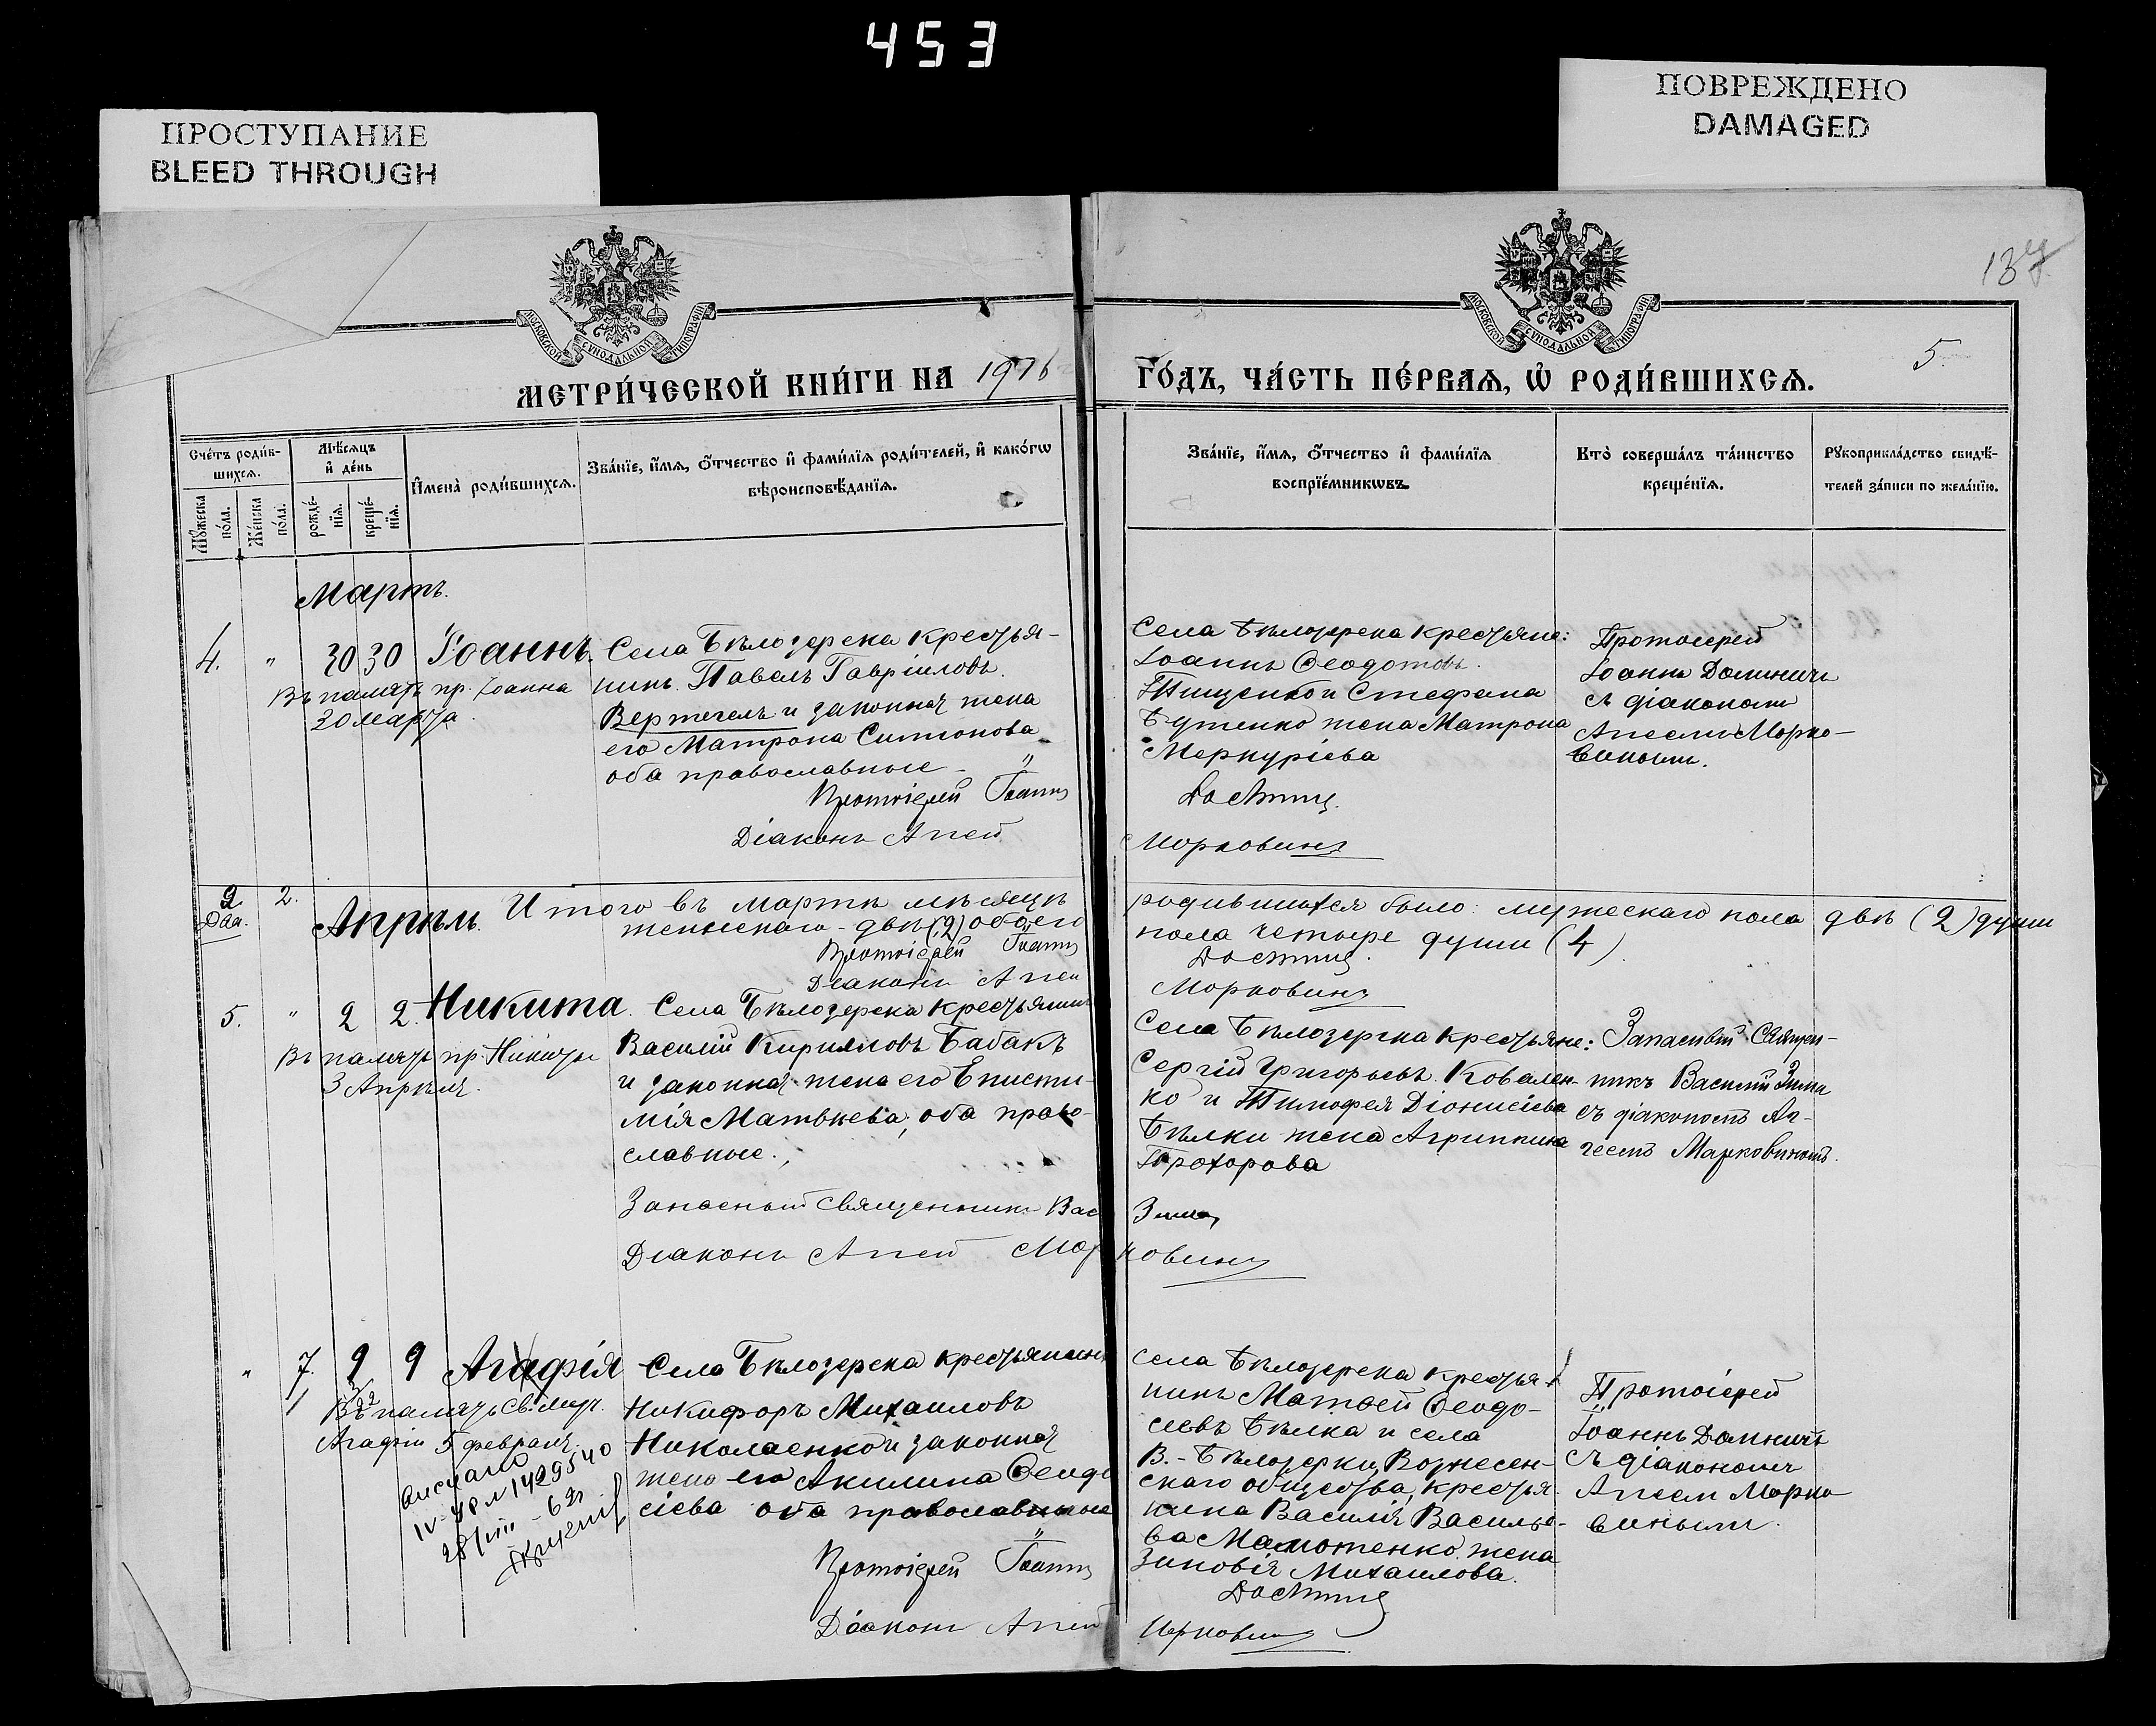 453
ПРОСТУПАНИЕ
BLEED THROUGH
ПОВРЕЖДЕНО
DAMAGED
МОСКОВСКОЙ СѴНОДАЛЬНОЙ ТИПОГРАФІИ
МОСКОВСКОЙ СѴНОДАЛЬНОЙ ТИПОГРАФІИ
5.
МЕТРИ́ЧЕСКОЙ КНИ́ГИ НА 1916
ГО́ДЪ, ЧА́СТЬ ПЕ́РВАЯ, Ѡ҆ РОДИ́ВШИХСЯ.
Сче́тъ роди́в-
шихся.
Мꙋ́жеска по́ла.
Же́нска по́ла.
Мѣ́сяцъ и҆ де́нь
рожде́-
нїя.
креще́-
нїя.
И҆мена̀ роди́вшихся.
Зва́нїе, и҆́мя, ѻ҆́тчество и҆ фами́лїя роди́телей, и҆ како́гѡ
вѣроисповѣ́данїя.
Зва́нїе, и҆́мя, ѻ҆́тчество и҆ фами́лїя
воспрїе́мникѡвъ.
Кто̀ соверша́лъ та́инство
креще́нїя.
Рꙋкоприкла́дство свидѣ́-
телей за́писи по жела́нїю.
Мартъ.
4. " 30 30 Іоаннъ.
Въ память пр. Іоанна
30 марта.
Села Бѣлозерска крестья-
нинъ Павелъ Гавріиловъ
Вертегелъ и законная жена
его Матрона Симонова
оба православные
Протоіерей Іоаннъ
Діаконъ Аггей
Села Бѣлозерска крестьяне:
Іоаннъ Ѳеодотовъ
Тищенко и Стефана
Бутенко жена Матрона
Меркуріева
Морковинъ
Протоіерей
Іоаннъ
съ діакономъ
Аггеемъ Морко-
винымъ.
2 2.
Два.
Итого въ мартѣ мѣсяцѣ
женскаго - двѣ (2) обоего
Протоіерей Іоаннъ
Діаконъ Аггей
родившихся было: мужескаго пола двѣ (2) души
пола четыре души (4)
Морковинъ
Апрѣль.
5. " 2 2. Никита.
Въ память пр. Никиты
3 Апрѣля.
Села Бѣлозерска крестьянинъ
Василій Кирилловъ Бабакъ
и законная жена его Еписти-
мія Матвѣева, оба право-
славные.
Запасный священникъ Вас
Діаконъ Аггей Мор
Села Бѣлозерска крестьяне:
Сергій Григорьевъ Ковален-
ко и Тимофея Діонисіева
Бѣлки жена Агриппина
Прохорова
Зима
ковинъ
Запасный Священ-
никъ Василій Зима
съ діакономъ Аг-
геемъ Марковиномъ.
" 7. 9 9 Агафія
Въ память Св. муч.
Агафіи 5 февраля.
IV-ЯР № 1429540
28/VIII - 62г
Села Бѣлозерска крестьянинъ
Никифоръ Михаиловъ
Николаенко и законная
жена его Акилина Ѳеодо
сіева оба православные
Протоіерей Іоаннъ
Діаконъ Аггей
Села Бѣлозерска крестья-
нинъ Матвей Ѳеодо-
сіевъ Бѣлка и села
В.-Бѣлозерки, Вознесен-
скаго общества, крестья-
нина Василія Василье-
ва Мамотенко жена
Зиновія Михаилова.
Протоіерей
Іоаннъ
съ діакономъ
Аггеем Морко
винымъ.